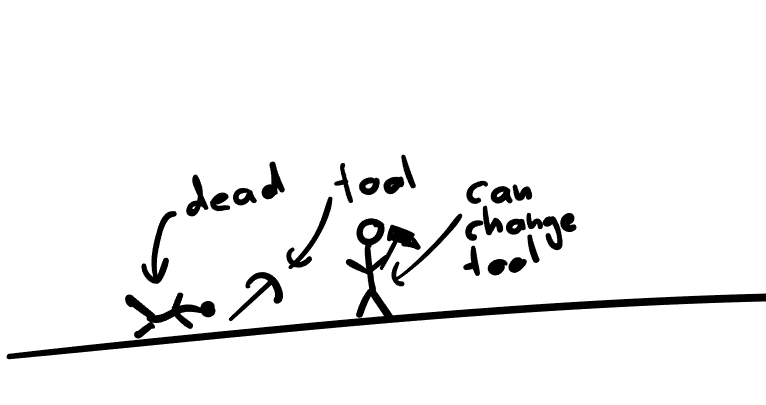 dead
tool
can
change
tool